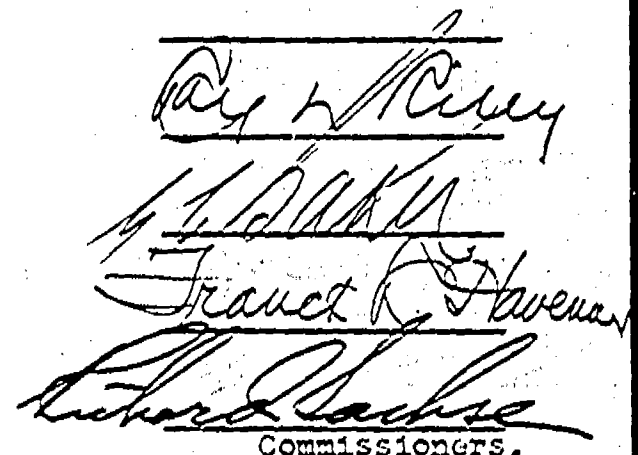 Ray L. Riley
Baker
Franck R. Havenner
Richard Sachse
Commissioners.